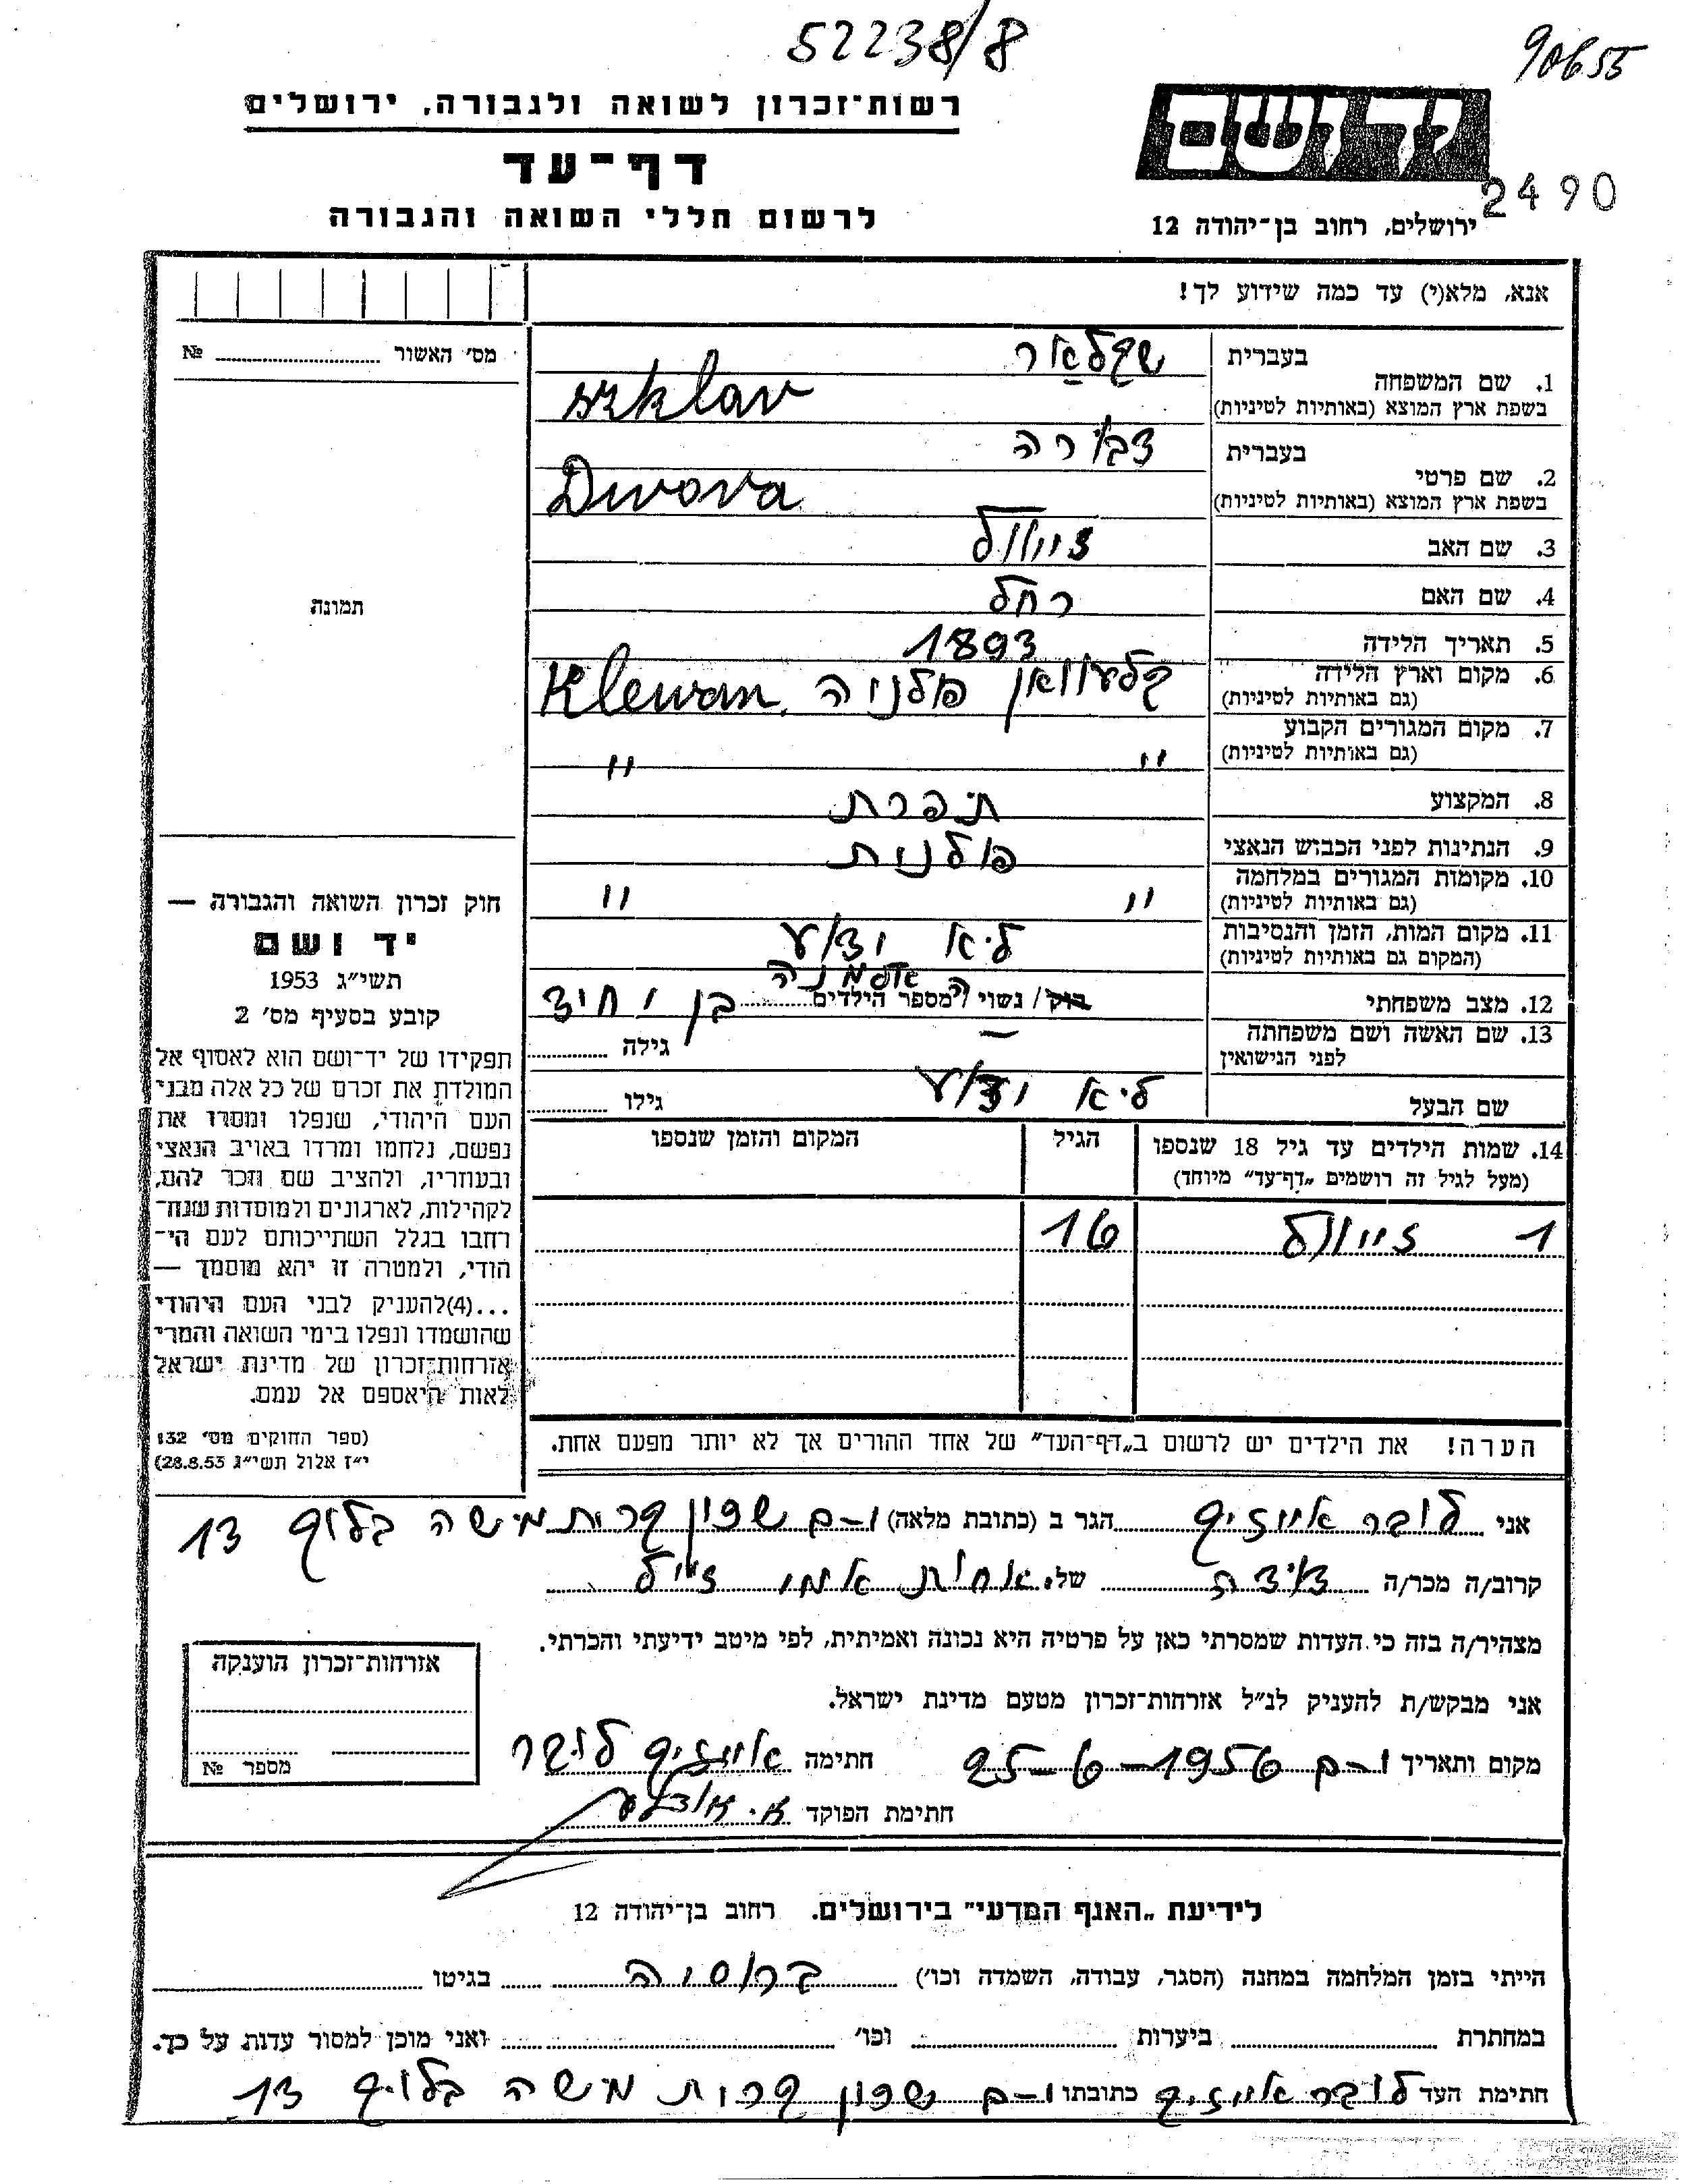 52238/8
90655
רשות־זכרון לשואה ולגבורה, ירושלים
דף־עד
לרשום חללי השואה והגבורה
יד ושם
2490
ירושלים, רחוב בן־יהודה 12
אנא, מלא(י) עד כמה שידוע לך!
מס׳ האשור № 
בעברית שקלאַר
1. שם המשפחה
בשפת ארץ המוצא (באותיות לטיניות) szklar
בעברית דבורה
2. שם פרטי
בשפת ארץ המוצא (באותיות לטיניות) Dwora
3. שם האב זיוול
4. שם האם רחל
5. תאריך הלידה 1893
6. מקום וארץ הלידה קלעוואן פולניה Klewan
(גם באותיות לטיניות)
7. מקום המגורים הקבוע
(גם באותיות לטיניות) " "
8. המקצוע תופרת
9. הנתינות לפני הכבוש הנאצי פולנית
10. מקומות המגורים במלחמה
(גם באותיות לטיניות) " "
11. מקום המות, הזמן והנסיבות לא ידוע
(המקום גם באותיות לטיניות)
12. מצב משפחתי רוק / נשוי / מספר הילדים אלמנה בן יחיד
13. שם האשה ושם משפחתה
לפני הנישואין — גילה
שם הבעל לא ידוע גילו
14. שמות הילדים עד גיל 18 שנספו הגיל המקום והזמן שנספו
(מעל לגיל זה רושמים „דף־עד" מיוחד)
1 זיוול 16
הערה! את הילדים יש לרשום ב„דף־העד" של אחד ההורים אך לא יותר מפעם אחת.
תמונה
חוק זכרון השואה והגבורה —
יד ושם
תשי״ג 1953
קובע בסעיף מס׳ 2
תפקידו של יד־ושם הוא לאסוף אל
המולדת את זכרם של כל אלה מבני
העם היהודי, שנפלו ומסרו את
נפשם, נלחמו ומרדו באויב הנאצי
ובעוזריו, ולהציב שם וזכר להם,
לקהילות, לארגונים ולמוסדות שנח־
רבו בגלל השתייכותם לעם הי־
הודי, ולמטרה זו יהא מוסמך —
...(4)להעניק לבני העם היהודי
שהושמדו ונפלו בימי השואה והמרי
אזרחות־זכרון של מדינת ישראל
לאות היאספם אל עמם.
(ספר החוקים מס׳ 132
י״ז אלול תשי״ג 28.8.53)
אני לובר אייזיק הגר ב (כתובת מלאה) י-ם שכון קרית משה בלוק 13
קרוב/ה מכר/ה דודה של אחות אמו ז״ל
מצהיר/ה בזה כי העדות שמסרתי כאן על פרטיה היא נכונה ואמיתית, לפי מיטב ידיעתי והכרתי.
אני מבקש/ת להעניק לנ״ל אזרחות־זכרון מטעם מדינת ישראל.
מקום ותאריך י-ם 25-6-1956 חתימה אייזיק לובר
חתימת הפוקד
אזרחות־זכרון הוענקה
מספר №
לידיעת „האגף המדעי" בירושלים. רחוב בן־יהודה 12
הייתי בזמן המלחמה במחנה (הסגר, עבודה, השמדה וכו׳) ברוסיה בגיטו
במחתרת ביערות וכו׳ ואני מוכן למסור עדות על כך.
חתימת העד לובר אייזיק כתובתו י-ם שכון קרית משה בלוק 13